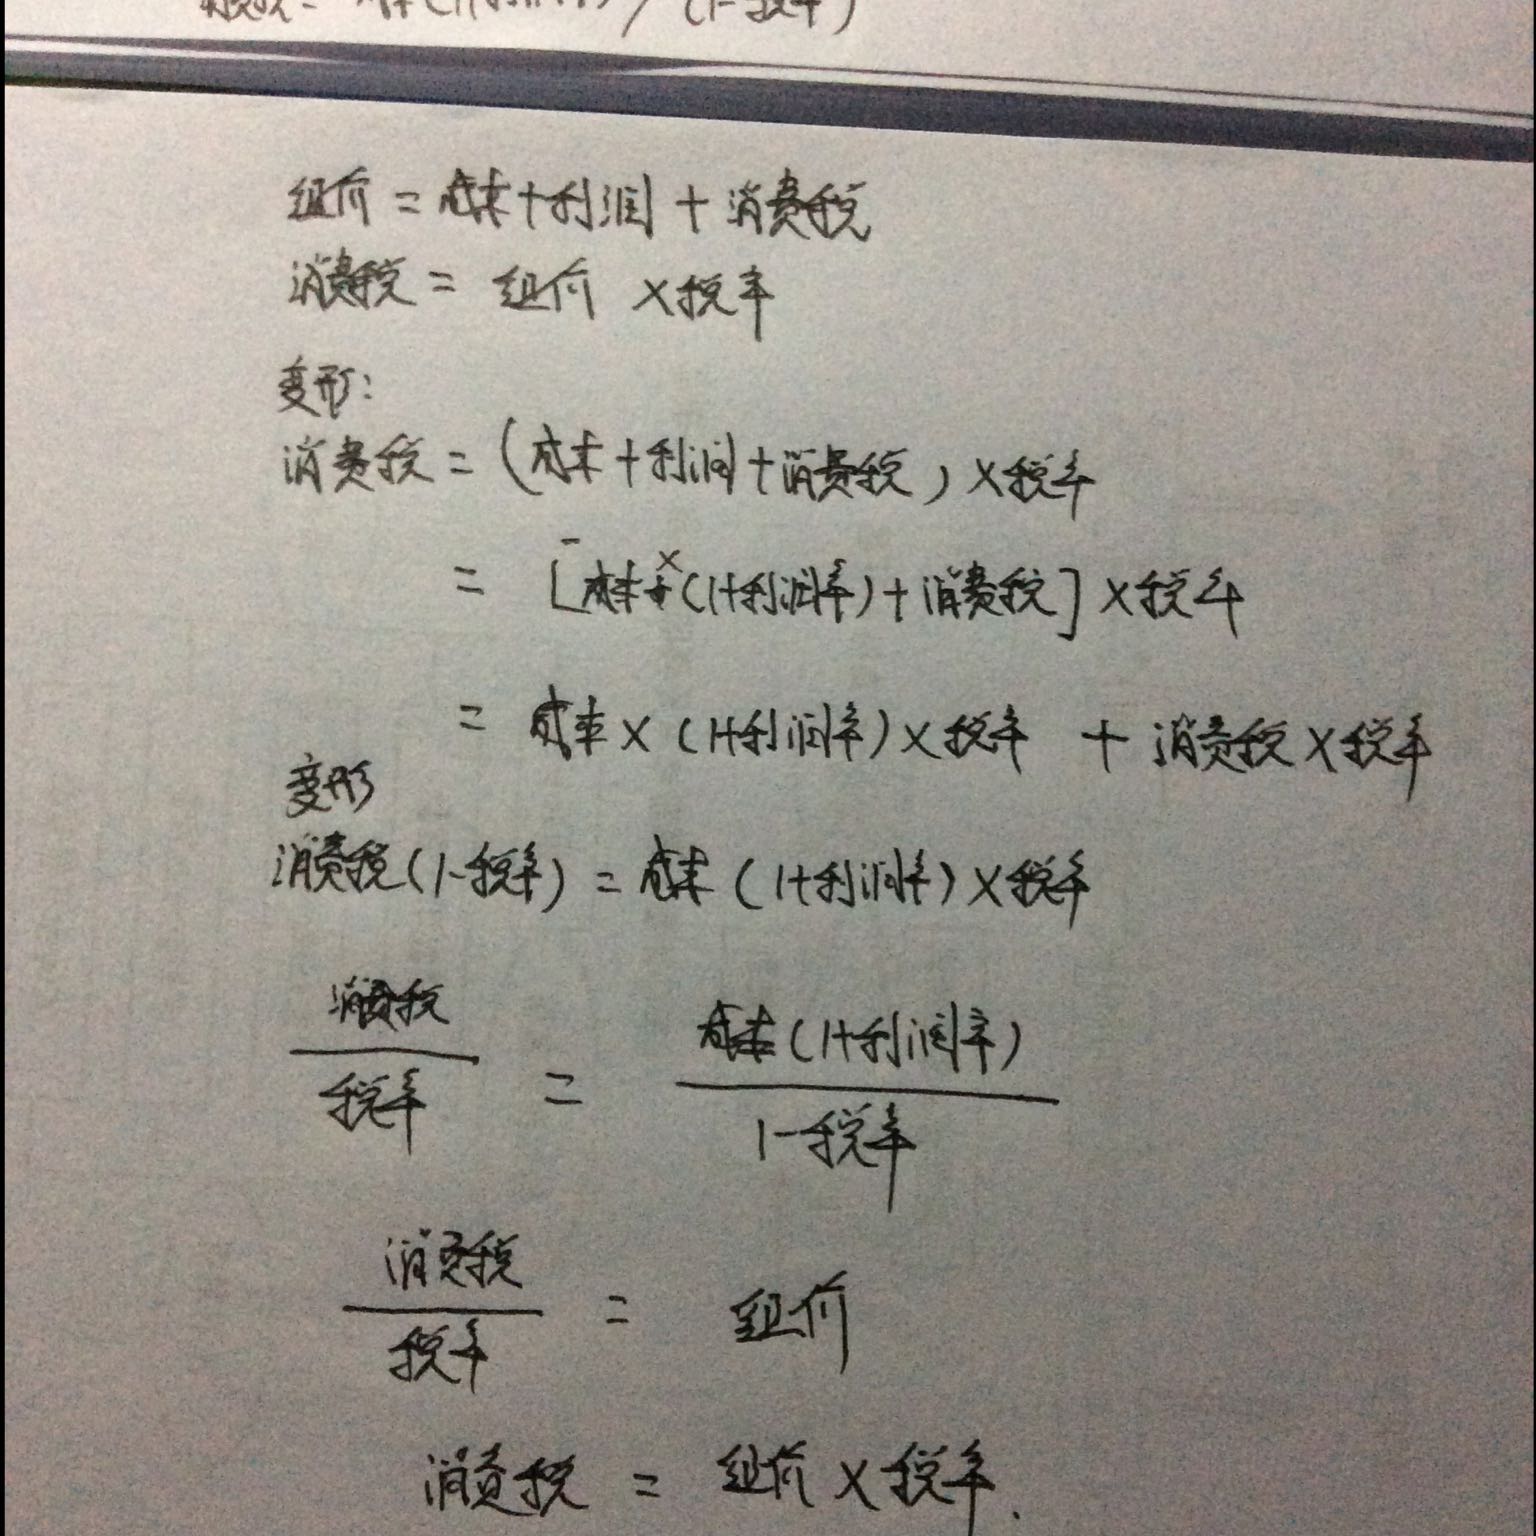 成本(1+利润率)/(1-税率)
组价 = 成本+利润+消费税
消费税 = 组价 ×税率
变形:
消费税 = (成本+利润+消费税)×税率
= [成本×(1+利润率)+消费税]×税率
= 成本×(1+利润率)×税率 + 消费税×税率
变形
消费税(1-税率) = 成本(1+利润率)×税率
消费税
税率
=
成本(1+利润率)
1-税率
消费税
税率
= 组价
消费税 = 组价×税率.